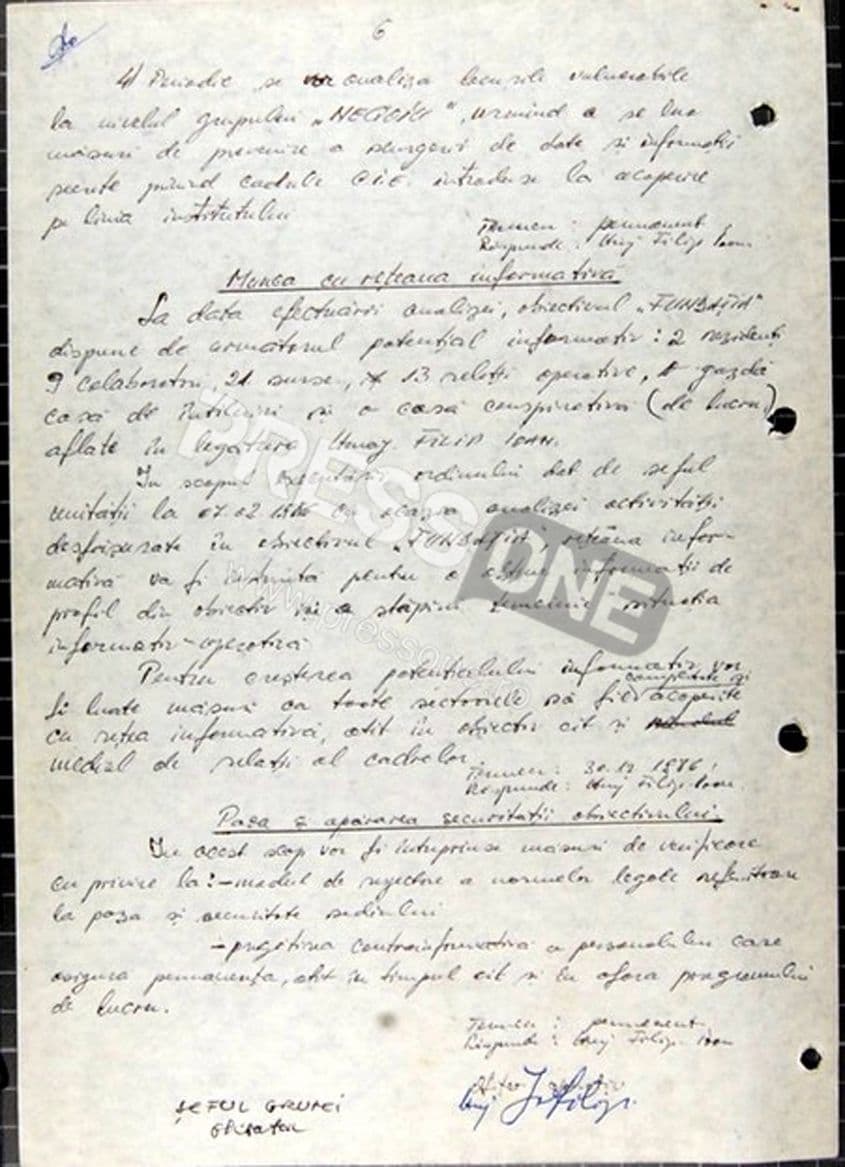 6
4) Periodic se vor analiza locurile vulnerabile
la nivelul grupului „NEGOIU", urmînd a se lua
măsuri de prevenire a scurgerii de date și informații
secrete privind cadrele C.I.E. introduse la acoperire
pe linia institutului
Termen : permanent
Răspunde : Lt.maj Filip Ioan
Munca cu rețeaua informativă
La data efectuării analizei, obiectivul „FUNDAȚIA"
dispune de următorul potențial informativ : 2 rezidenți
9 colaboratori, 21 surse, 13 relații operative, gazdă
casă de întîlniri și o casă conspirativă (de lucru)
aflate în legătura Lt.maj. FILIP IOAN.
În scopul executării ordinului dat de șeful
unității la 07.02.1986 cu ocazia analizei activității
desfășurate în obiectivul „FUNDAȚIA", rețeaua infor-
mativă va fi instruită pentru a obține informații de
profil din obiectiv și a stăpîni temeinic situația
informativ-operativă
Pentru creșterea potențialului informativ, vor
fi luate măsuri ca toate sectoarele să fie completate și acoperite
cu rețea informativă, atît în obiectiv cît și
mediul de relații al cadrelor.
Termen : 30.12.1986
Răspunde : Lt.maj Filip Ioan.
Paza și apărarea securității obiectivului.
În acest scop vor fi întreprinse măsuri de verificare
cu privire la : - modul de respectare a normelor legale referitoare
la paza și securitate sediului
- pregătirea contrainformativă a personalului care
asigură permanența, atît în timpul cît și în afara programului
de lucru.
Termen : permanent
Răspunde : Lt.maj Filip Ioan
Ofițer operativ
ȘEFUL GRUPEI
PRESSONE